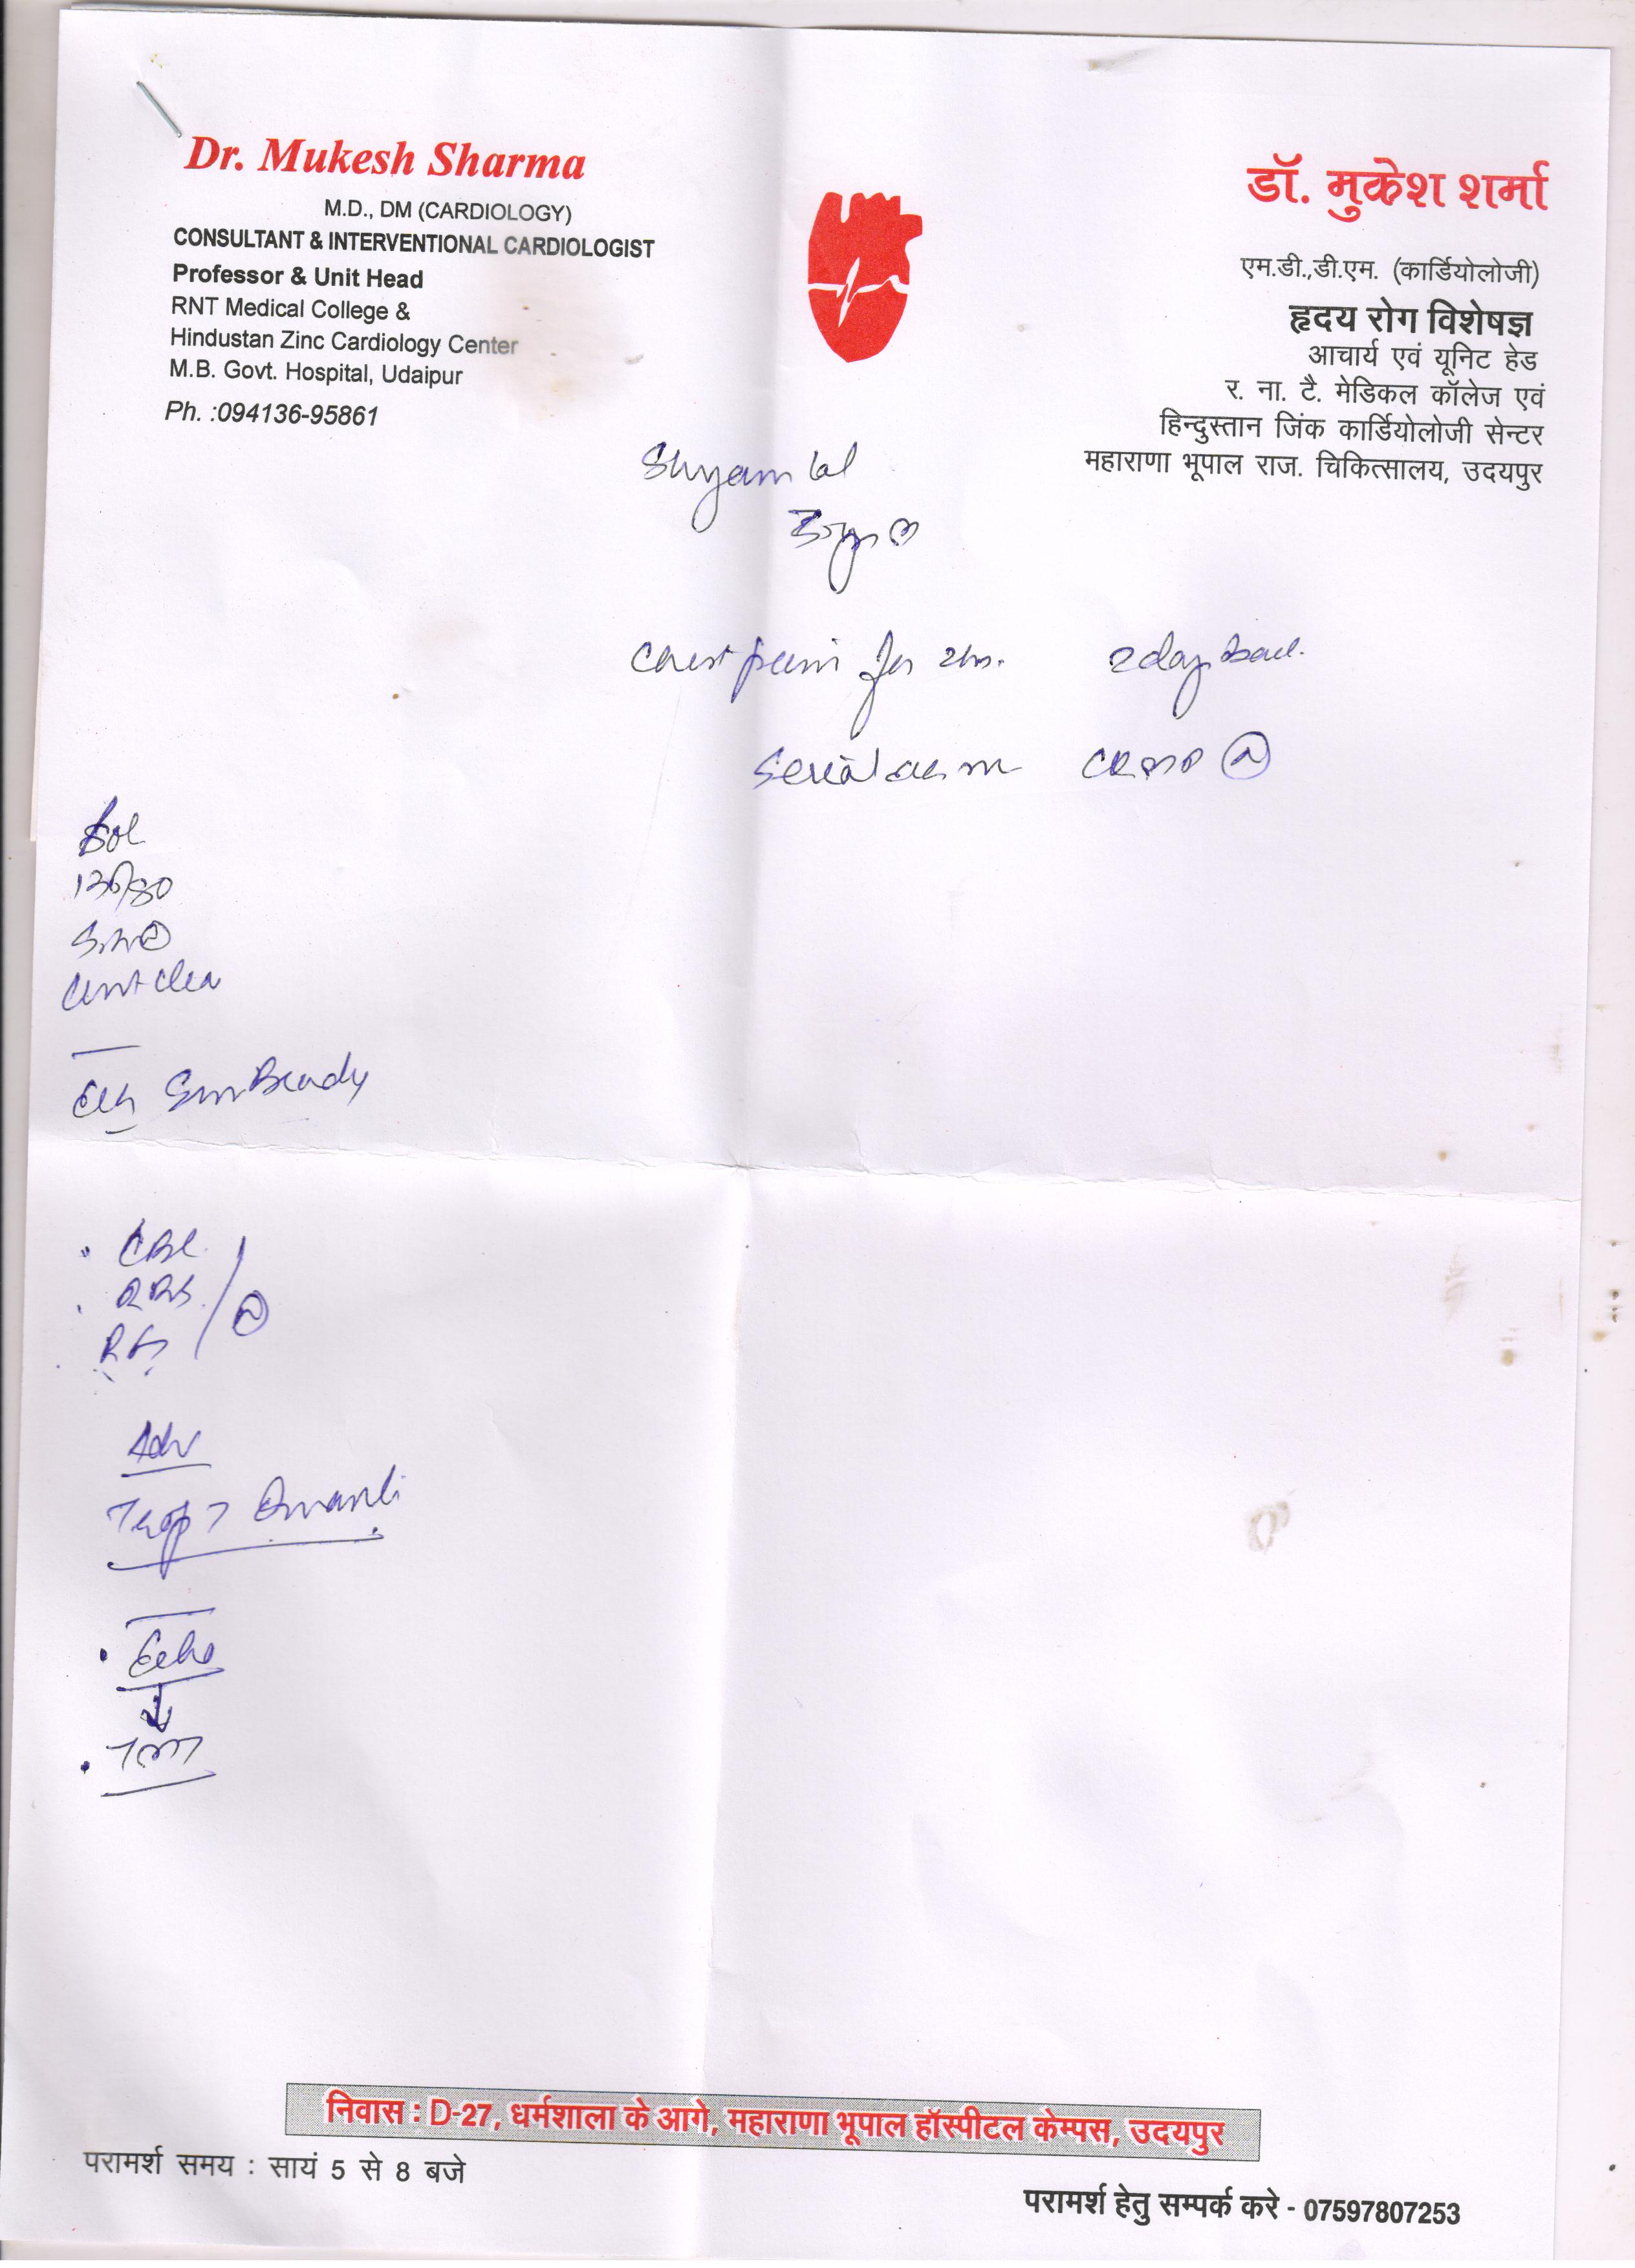 Dr. Mukesh Sharma
M.D., DM (CARDIOLOGY)
CONSULTANT & INTERVENTIONAL CARDIOLOGIST
Professor & Unit Head
RNT Medical College &
Hindustan Zinc Cardiology Center
M.B. Govt. Hospital, Udaipur
Ph. :094136-95861
डॉ. मुकेश शर्मा
एम.डी.,डी.एम. (कार्डियोलोजी)
हृदय रोग विशेषज्ञ
आचार्य एवं यूनिट हेड
र. ना. टै. मेडिकल कॉलेज एवं
हिन्दुस्तान जिंक कार्डियोलोजी सेन्टर
महाराणा भूपाल राज. चिकित्सालय, उदयपुर
Shyam lal
Chest pain for 2hr. 2 day back.
Serial
130/80
Chest clear
ECG Sinus Brady
CBC
RBS
RFT
Adv
Trop T Quanti
Echo
TMT
निवास : D-27, धर्मशाला के आगे, महाराणा भूपाल हॉस्पीटल केम्पस, उदयपुर
परामर्श समय : सायं 5 से 8 बजे
परामर्श हेतु सम्पर्क करे - 07597807253